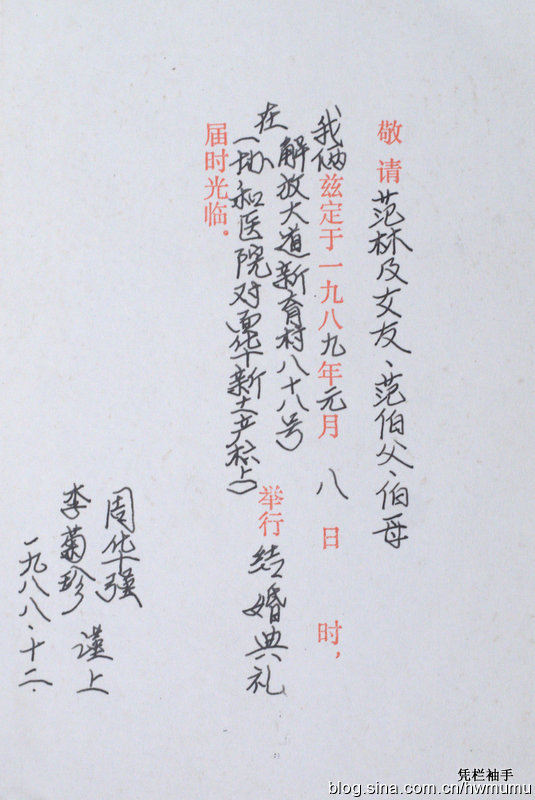 敬请 范林及女友、范伯父、伯母
我俩兹定于一九八九年元月八日 时，
在解放大道新育村八十八号
（协和医院对面华新土产 上）举行结婚典礼
届时光临。
周华强
李菊珍 谨上
一九八八·十二·
凭栏袖手
blog.sina.com.cn/hwmumu